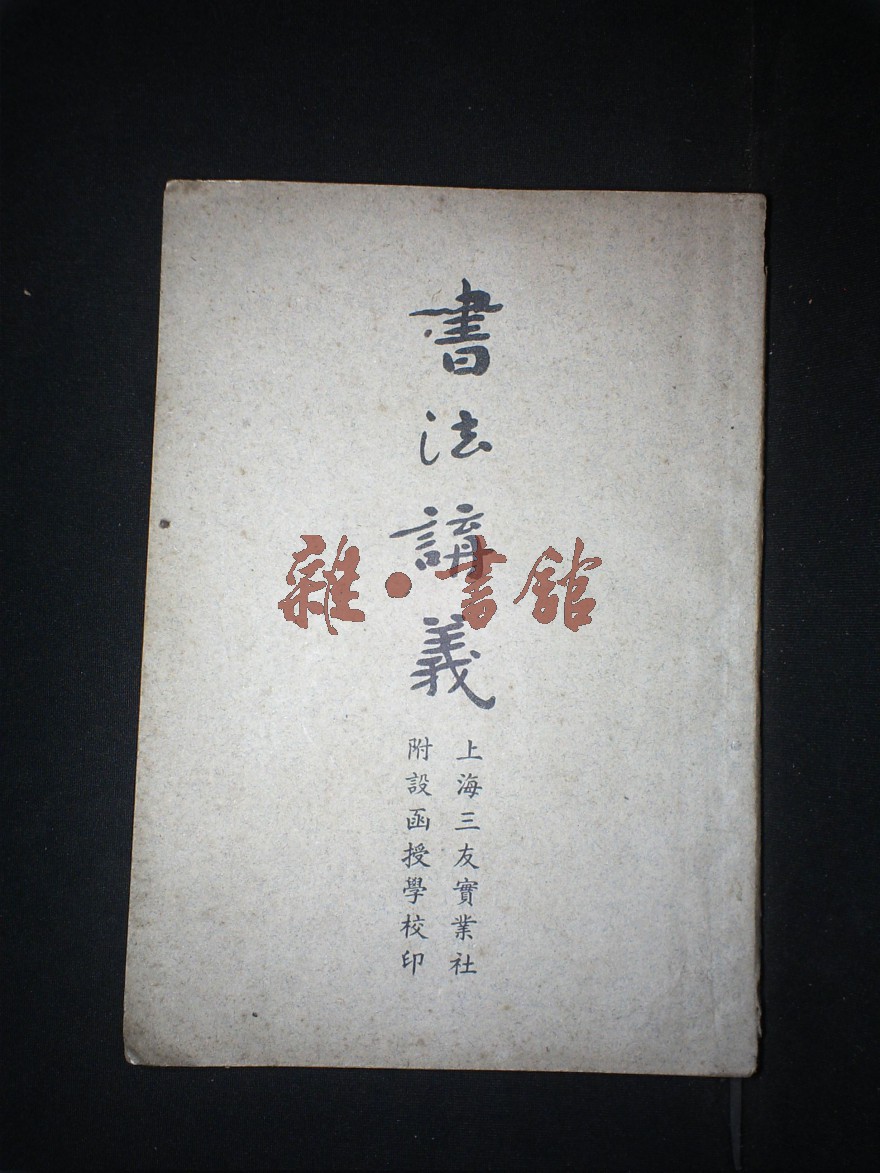 書法講義
上海三友實業社
附設函授學校印
雜·書館